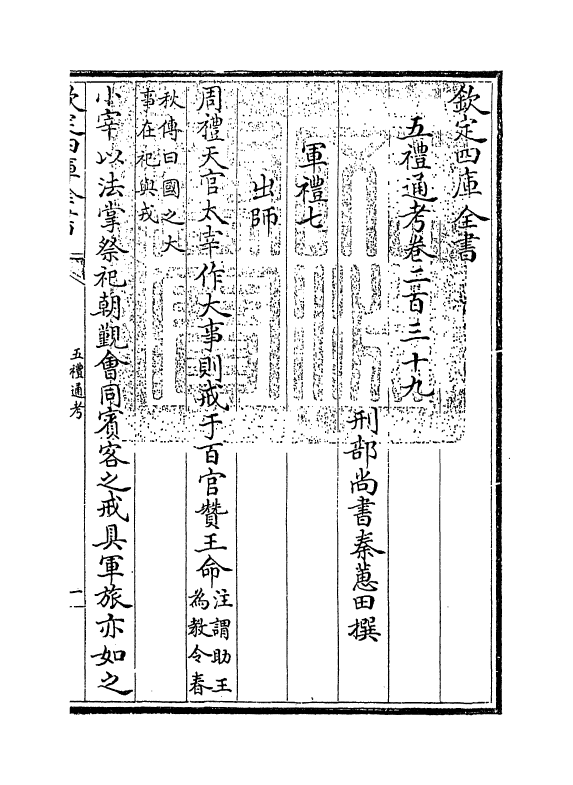 欽定四庫全書
五禮通考卷二百三十九
刑部尚書秦蕙田撰
軍禮七
出師
周禮天官太宰作大事則戒于百官贊王命注謂助王為教令春
秋傳曰國之大事在祀與戎
小宰以法掌祭祀朝覲會同賓客之戒具軍旅亦如之
欽定四庫全書
五禮通考
一